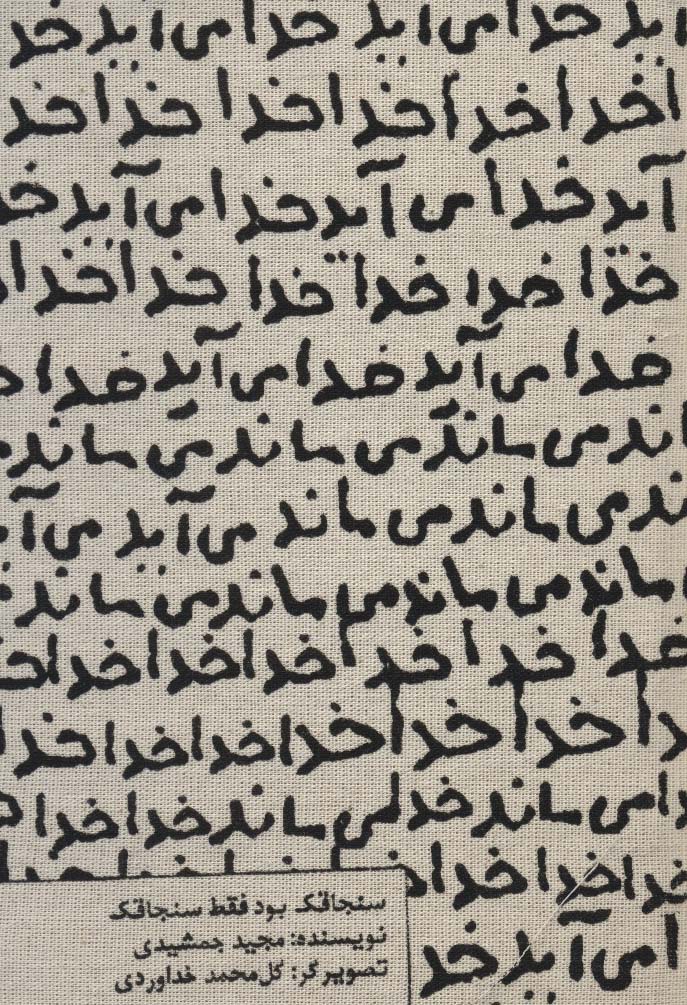 اید خدا می اید خدا می اید خد
اخدا خدا خدا خدا خدا خد
آید خدا می آید خدا می آید خد
خدا خدا خدا خدا خدا خدا
خدا می آید خدا می آید خدا
اند می ماند می ماند می ماند
ند می ماند می ماند می آید می آ
ماند می ماند می ماند می ماند
خدا خدا خدا خدا خدا خد
دا خدا خدا خدا خدا خدا خدا
دا می ماند خدا می ماند خدا خدا
خدا خدا خدا
ا می آید خد
سنجاقک بود فقط سنجاقک
نویسنده: مجید جمشیدی
تصویرگر: گل‌محمد خداوردی